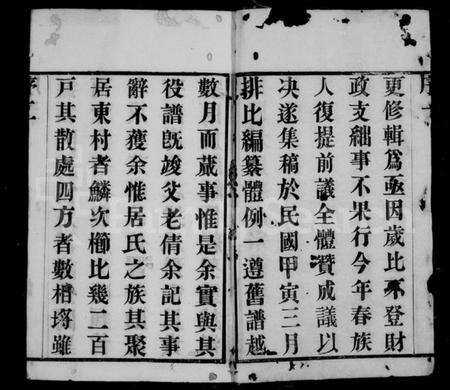 更修輯爲亟因歲比不登財
政支絀事不果行今年春族
人復提前議全體贊成議以
决遂集稿於民國甲寅三月
排比編纂體例一遵舊譜越
數月而蕆事惟是余實與其
役譜既竣父老倩余記其事
辭不獲余惟居氏之族其聚
居東村者鱗次櫛比幾二百
戸其散處四方者數楷塝雖
序二